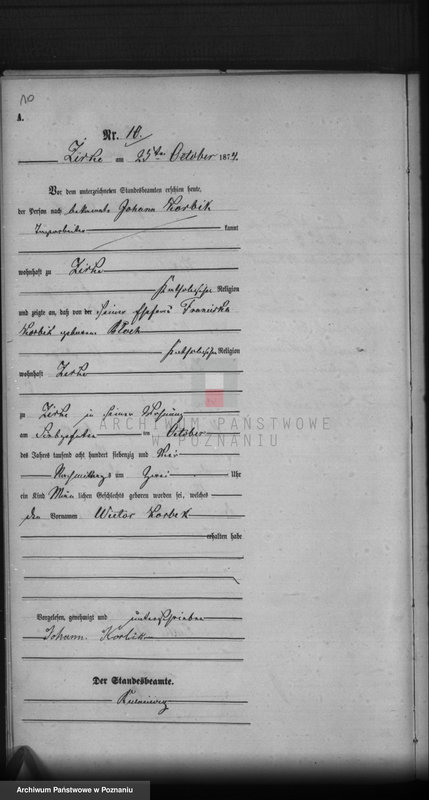 10
A.
Nr. 10.
Zirke am 25ten October 1874.
Vor dem unterzeichneten Standesbeamten erschien heute,
der Person nach bekannte Johann Korbik
kannt
wohnhaft zu Zirke
katholischer Religion
und zeigte an, daß von der seiner Ehefrau Franciska
Korbik geborene
katholischer Religion
wohnhaft Zirke
zu Zirke in seiner Wohnung
am Siebzehnten ten October
des Jahres tausend acht hundert siebenzig und Vier
Nachmittags um Zwei Uhr
ein Kind Männlichen Geschlechts geboren worden sei, welches
den Vornamen Wictor Korbik
erhalten habe
Vorgelesen, genehmigt und unterschrieben
Johann Korbik
Der Standesbeamte.
ARCHIWUM PAŃSTWOWE
W POZNANIU
Archiwum Państwowe w Poznaniu